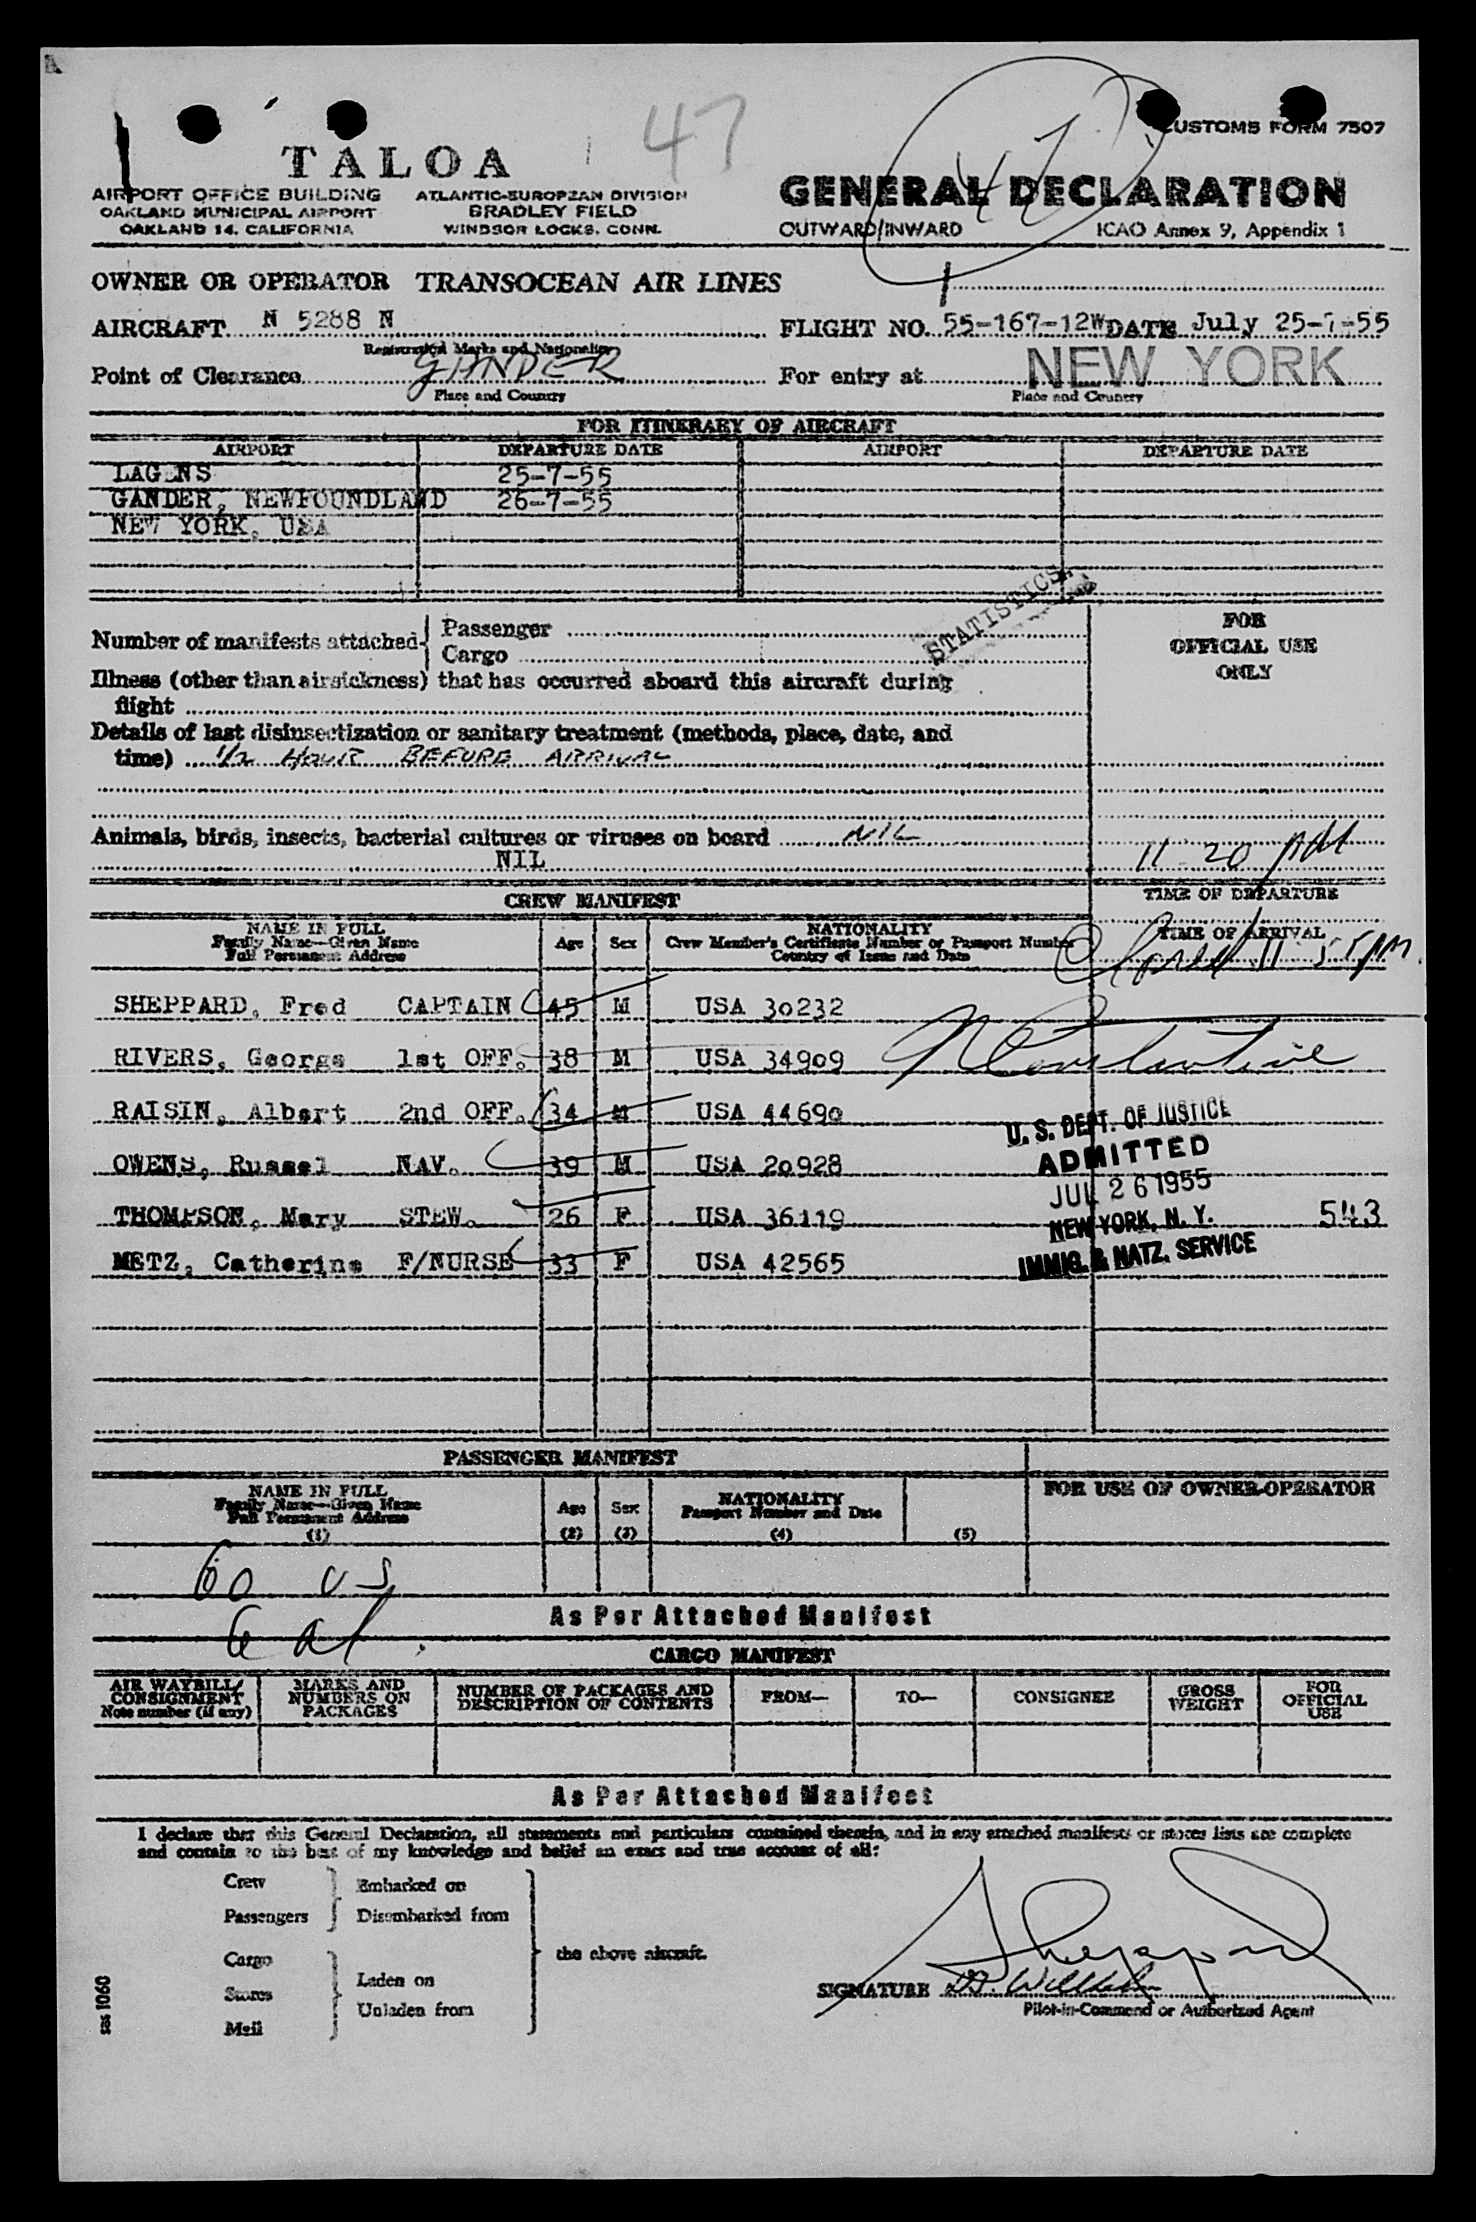 47
CUSTOMS FORM 7507
TALOA
AIRPORT OFFICE BUILDING
OAKLAND MUNICIPAL AIRPORT
OAKLAND 14, CALIFORNIA
ATLANTIC-EUROPEAN DIVISION
BRADLEY FIELD
WINDSOR LOCKS, CONN.
GENERAL DECLARATION
OUTWARD/INWARD ICAO Annex 9, Appendix 1
47
OWNER OR OPERATOR TRANSOCEAN AIR LINES
AIRCRAFT N 5288 N FLIGHT NO. 55-167-12W DATE July 25-7-55
Registration Marks and Nationality
Point of Clearance GANDER For entry at NEW YORK
Place and Country Place and Country
FOR ITINERARY OF AIRCRAFT
AIRPORT DEPARTURE DATE AIRPORT DEPARTURE DATE
LAGENS 25-7-55
GANDER, NEWFOUNDLAND 26-7-55
NEW YORK, USA
STATISTICS
Number of manifests attached Passenger
Cargo
FOR
OFFICIAL USE
ONLY
Illness (other than airsickness) that has occurred aboard this aircraft during
flight
Details of last disinsectization or sanitary treatment (methods, place, date, and
time) 1/2 HOUR BEFORE ARRIVAL
Animals, birds, insects, bacterial cultures or viruses on board NIL
NIL
11 20 PM
TIME OF DEPARTURE
CREW MANIFEST
NAME IN FULL
Family Name—Given Name
Full Permanent Address
Age Sex
NATIONALITY
Crew Member's Certificate Number or Passport Number
Country of Issue and Date
TIME OF ARRIVAL
11 55 PM
SHEPPARD, Fred CAPTAIN 45 M USA 30232
RIVERS, George 1st OFF. 38 M USA 34909
N Constantine
RAISIN, Albert 2nd OFF. 34 M USA 44690
OWENS, Russel NAV. 39 M USA 20928
THOMPSON, Mary STEW. 26 F USA 36119
METZ, Catherine F/NURSE 33 F USA 42565
U. S. DEPT. OF JUSTICE
ADMITTED
JUL 26 1955
NEW YORK, N. Y.
IMMIG. & NATZ. SERVICE
543
PASSENGER MANIFEST
NAME IN FULL
Family Name—Given Name
Full Permanent Address
(1)
Age
(2)
Sex
(3)
NATIONALITY
Passport Number and Date
(4)
(5)
FOR USE OF OWNER-OPERATOR
60 US
6 al
As Per Attached Manifest
CARGO MANIFEST
AIR WAYBILL/
CONSIGNMENT
Note number (if any)
MARKS AND
NUMBERS ON
PACKAGES
NUMBER OF PACKAGES AND
DESCRIPTION OF CONTENTS
FROM—
TO—
CONSIGNEE
GROSS
WEIGHT
FOR
OFFICIAL
USE
As Per Attached Manifest
I declare that this General Declaration, all statements and particulars contained therein, and in any attached manifests or stores lists are complete
and contain to the best of my knowledge and belief an exact and true account of all:
Crew
Passengers
Embarked on
Disembarked from
Cargo
Stores
Mail
Laden on
Unladen from
the above aircraft.
Sheppard
SIGNATURE
Pilot-in-Command or Authorized Agent
sas 1060